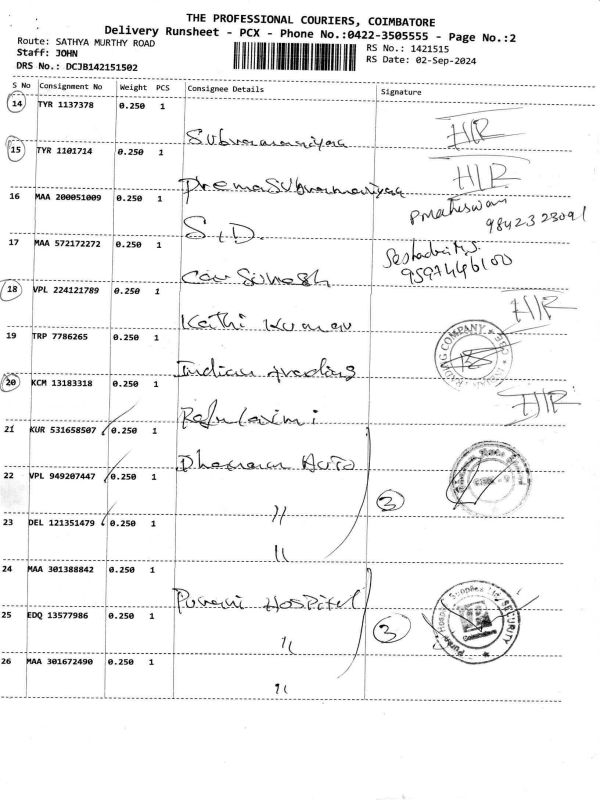 THE PROFESSIONAL COURIERS, COIMBATORE
Delivery Runsheet - PCX - Phone No.:0422-3505555 - Page No.:2
Route: SATHYA MURTHY ROAD
Staff: JOHN
DRS No.: DCJB142151502
RS No.: 1421515
RS Date: 02-Sep-2024
S No Consignment No Weight PCS Consignee Details Signature
14 TYR 1137378 0.250 1
H/R
15 TYR 1101714 0.250 1
H/R
16 MAA 200051009 0.250 1
S.D. 98423 23091
17 MAA 572172272 0.250 1
9597446100
18 VPL 224121789 0.250 1
H/R
19 TRP 7786265 0.250 1
Indian trading
20 KCM 13183318 0.250 1
H/R
21 KUR 531658507 0.250 1
Auto
22 VPL 949207447 0.250 1
3
"
23 DEL 121351479 0.250 1
"
24 MAA 301388842 0.250 1
Hospital
25 EDQ 13577986 0.250 1
3
"
26 MAA 301672490 0.250 1
"